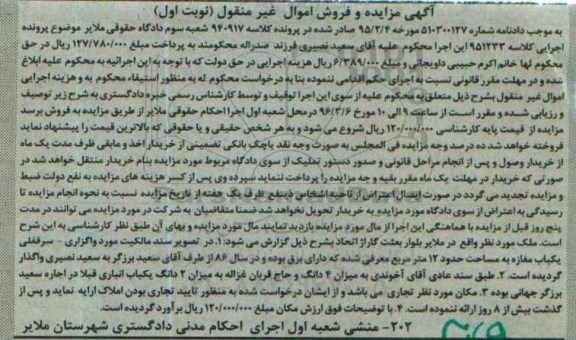 آگهی مزایده و فروش اموال غیر منقول (نوبت اول)
به موجب دادنامه شماره ۵۱۰۳۰۰۱۲۷ مورخه ۹۵/۲/۴ صادر شده در پرونده کلاسه ۹۴۰۹۱۷ شعبه سوم دادگاه حقوقی ملایر موضوع پرونده
اجرایی کلاسه ۹۵۱۲۳۳ این اجرا محکوم علیه آقای سعید نصیری فرزند صدراله محکومند به پرداخت مبلغ ۱۲۷/۷۸۰/۰۰۰ ریال در حق
محکوم لها خانم اکرم حبیبی داویجانی و مبلغ ۶/۳۸۹/۰۰۰ ریال هزینه اجرایی در حق دولت که با توجه به این اجرائیه به محکوم علیه ابلاغ
شده و در مهلت مقرر قانونی نسبت به اجرای حکم اقدامی ننموده بنا به درخواست محکوم له به منظور استیفاء محکوم به و هزینه اجرایی
اموال غیر منقول بشرح ذیل متعلق به محکوم علیه از سوی این اجرا توقیف و توسط کارشناس رسمی خبره دادگستری به شرح زیر توصیف
و ارزیابی شده و مقرر است از ساعت ۹ الی ۱۰ مورخ ۹۶/۳/۶ در محل شعبه اول اجرا احکام حقوقی ملایر از طریق مزایده به فروش برسد
مزایده از قیمت پایه کارشناسی ۱۲۰/۰۰۰/۰۰۰ ریال شروع می شود و به هر شخص حقیقی و یا حقوقی که بالاترین قیمت را پیشنهاد نماید
فروخته خواهد شد ده درصد وجه مزایده فی المجلس به صورت وجه نقد یا چک بانکی تضمینی از خریدار اخذ و مابقی ظرف مدت یک ماه
از خریدار وصول و پس از انجام مراحل قانونی و صدور دستور تملیک از سوی دادگاه مربوط مورد مزایده بنام خریدار منتقل خواهد شد در
صورتی که خریدار در مهلت یک ماه مقرر بقیه وجه مزایده را پرداخت ننماید سپرده وی پس از کسر هزینه های مزایده به نفع دولت ضبط
و مزایده تجدید می گردد در صورت اعتراض از ناحیه اشخاص ذینفع ظرف یک هفته از تاریخ مزایده نسبت به نحوه انجام مزایده تا
رسیدگی به اعتراض از سوی دادگاه مورد مزایده به خریدار تحویل نخواهد شد ضمنا متقاضیان به شرکت در مورد مزایده می توانند در مدت
پنج روز قبل از مزایده با هماهنگی این اجرا از مال مورد مزایده بازدید نمایند مال مورد مزایده و بهای آن طبق نظر کارشناسی به این شرح
است. ملک مورد نظر واقع در ملایر بلوار بعثت گاراژ اتحاد بشرح ذیل گزارش می شود: ۱. در تصویر سند مالکیت مورد واگزاری - سرقفلی
یکباب مغازه به مساحت حدود ۱۲ متر مربع معرفی شده که دارای برق بوده و در سال ۸۶ از طرف آقای سعید برزگر به سعید نصیری واگذار
گردیده است. ۲. طبق سند عادی آقای آخوندی به میزان ۴ دانگ و حاج قربان غزاله به میزان ۲ دانگ یکباب انباری قبلا در اجاره سعید
برزگر جهانی بوده ۳. مکان مورد نظر تجاری می باشد و از ایشان درخواست شده به منظور تایید تجاری بودن املاک ارایه نماید و پس از
گذشت بیش از ۸ روز ارائه ننموده است. ۴. با توضیحات فوق ارزش مکان مبلغ ۱۲۰/۰۰۰/۰۰۰ ریال برآورد گردیده است.
۲۰۲- منشی شعبه اول اجرای احکام مدنی دادگستری شهرستان ملایر